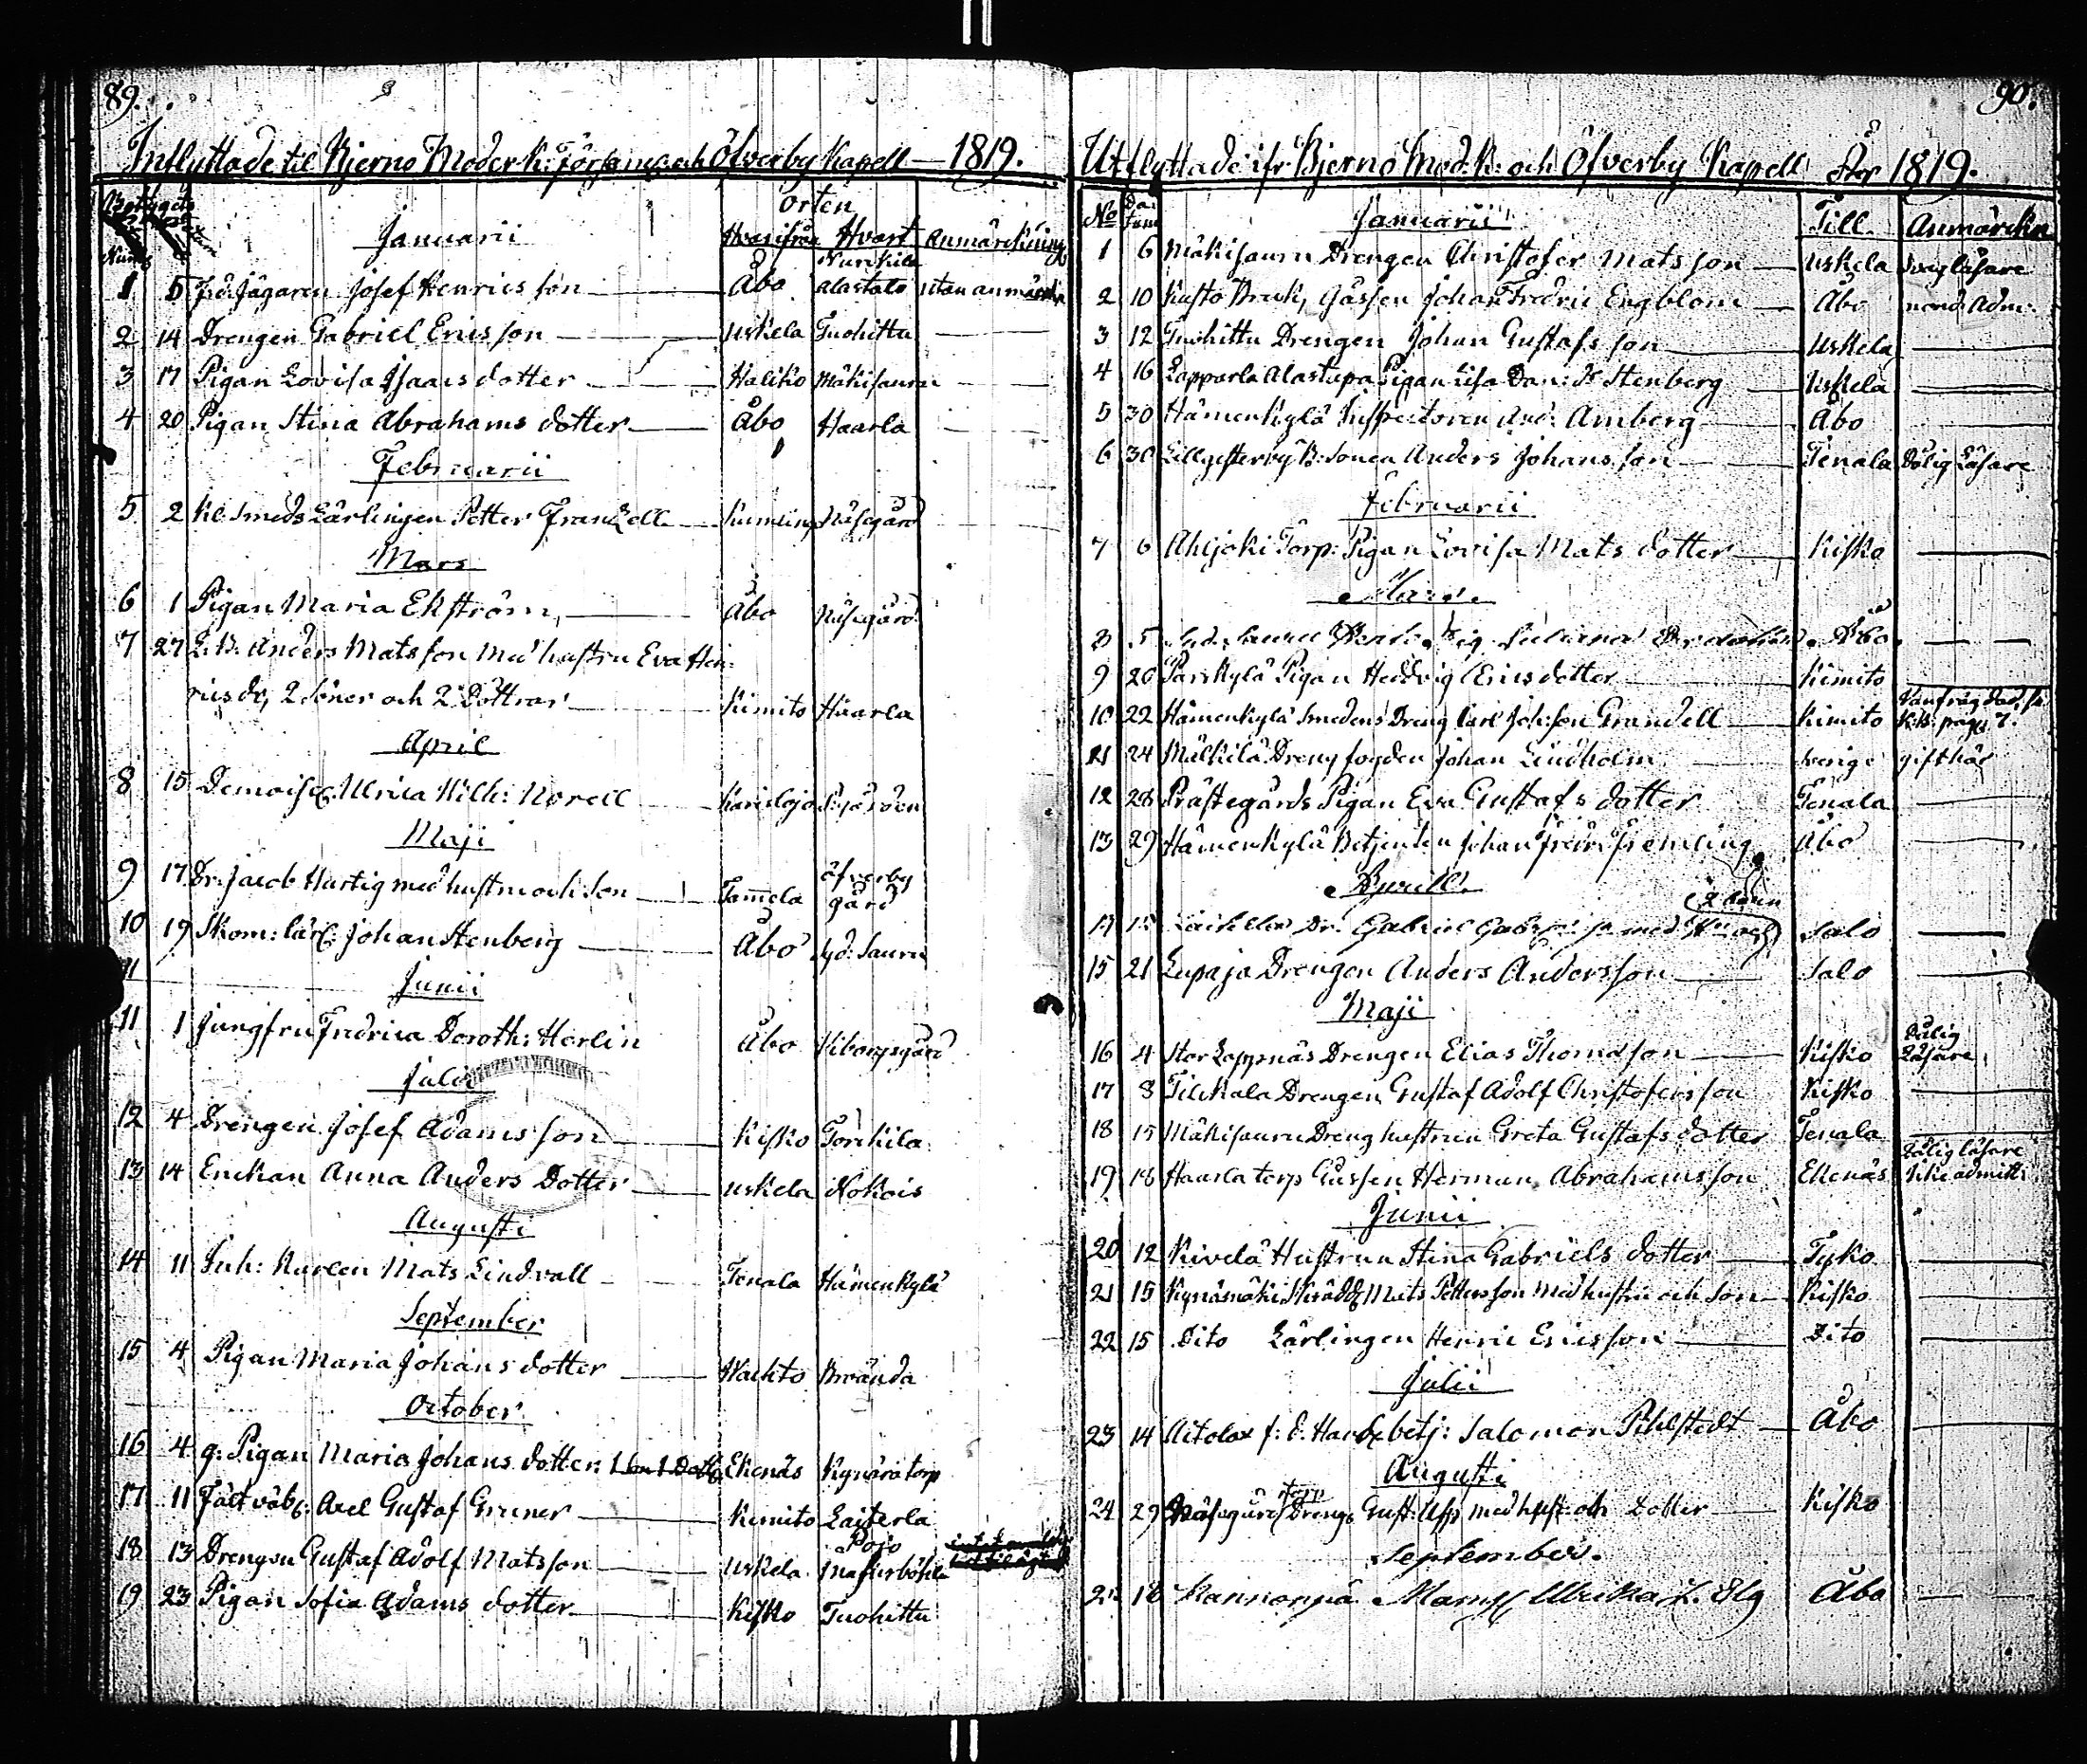 89.
Inflyttade til Bjerno Moder K: Församl och Öfverby Kapell — 1819.
Betygets
Orten
Januarii Hvarifrån Hvart Anmärckning
1 5 Jägaren Josef Henricsson Åbo Alastalo utan anmärkn
2 14 Drengen Gabriel Ericsson Uskela Tuohittu
3 17 Pigan Lovisa Isaacs dotter Haliko Mäkisauru
4 20 Pigan Stina Abrahams dotter Åbo Haarla
Februarii
5 2 Kl. Smeds Lärlingen Petter Franzell Kumling Näsegård
Mars
6 1 Pigan Maria Ekström Åbo Näsegård
7 27 L.B. Anders Matsson med hustru Eva Hen-
ricsdr, 2 Söner och 2 Döttrar Kimito Haarla
April
8 15 Demoisel Ulrica Wilh: Norell Karislojo
Maji
9 17 Dr. Jacob Hartig med hustru och Son Tamela Öfverby gård
10 19 Skom: lärl: Johan Stenberg Åbo Yd: Sauru
Junii
11 1 Jungfru Fredrica Doroth: Herlin Åbo Viborgsgård
Julii
12 4 Drengen Josef Adamsson Kisko Torrkila
13 14 Enckan Anna Anders Dotter Uskela Nokois
Augusti
14 11 Inh: Karlen Mats Lindvall Tenala Hämenkylä
September
15 4 Pigan Maria Johans dotter Wachto Brända
October
16 4 g: Pigan Maria Johans dotter 1 Son 1 Dott. Ekenäs Kynära torp
17 11 Fält väb. Axel Gustaf Gruner Kimito Laiterla
18 13 Drengen Gustaf Adolf Matsson Uskela Pojo
19 23 Pigan Sofia Adams dotter Kisko Tuohittu
90.
Utflyttade ifr Bjerno Mod. K: och Öfverby Kapell År 1819.
No Datum Januarii Till Anmärckn
1 6 Mäkisauru Drengen Christofer Matsson Uskela Svag läsare
2 10 Kusto Bruk, Gåssen Johan Fredric Engblom Åbo
3 12 Tuohittu Drengen Johan Gustafsson Uskela
4 16 Lapparla Alastupa Pigan Lisa Dan: Dr Stenberg Uskela
5 30 Hämenkylä Inspectoren And: Amberg Åbo
6 30 Lillgesterby B: Sonen Anders Johansson Tenala Dålig Läsare
Februarii
7 6 Ahljoki Torp: Pigan Lovisa Mats dotter Kisko
Mars.
8 5 Åbo
9 20 Parskylä Pigan Heddvig Erics dotter Kimito
10 22 Hämenkylä Smedens Dreng Carl Joh: son Grandell Kimito K.B. pag. 7.
11 24 Mälkilä Dreng fogden Johan Lindholm Sverige gift här
12 28 Prästegårds Pigan Eva Gustafs dotter Tenala
13 29 Hämenkylä Betjenten Johan Fredr. Fremling Åbo
Aprill.
2 barn
14 15 Dr. Gabriel med Hu och Salo
15 21 Lupaja Drengen Anders Andersson Salo
Maji
16 4 Stor Lappnäs Drengen Elias Thomasson Kisko Dålig Läsare
17 8 Tilckala Drengen Gustaf Adolf Christofersson Kisko
18 15 Mäkisauru Dreng hustrun Greta Gustafs dotter Tenala
19 18 Haarla torp Gåssen Herman Abrahamsson Ekenäs Dålig läsare Icke admitt:
Junii
20 12 Kivelä Hustrun Stina Gabriels dotter Tyko
21 15 Kynämäki Skrädd. Mats Pettersson med hustru och Son Kisko
22 15 Dito Lärlingen Henric Ericsson Dito
Julii
23 14 Aitolax f: d: betj: Salomon Pihlstedt Åbo
Augusti
24 29 Näsegård torp Dreng. Gust: med hust: och Dotter Kisko
September.
25 18 Mams. Ulrika L. Elg Åbo